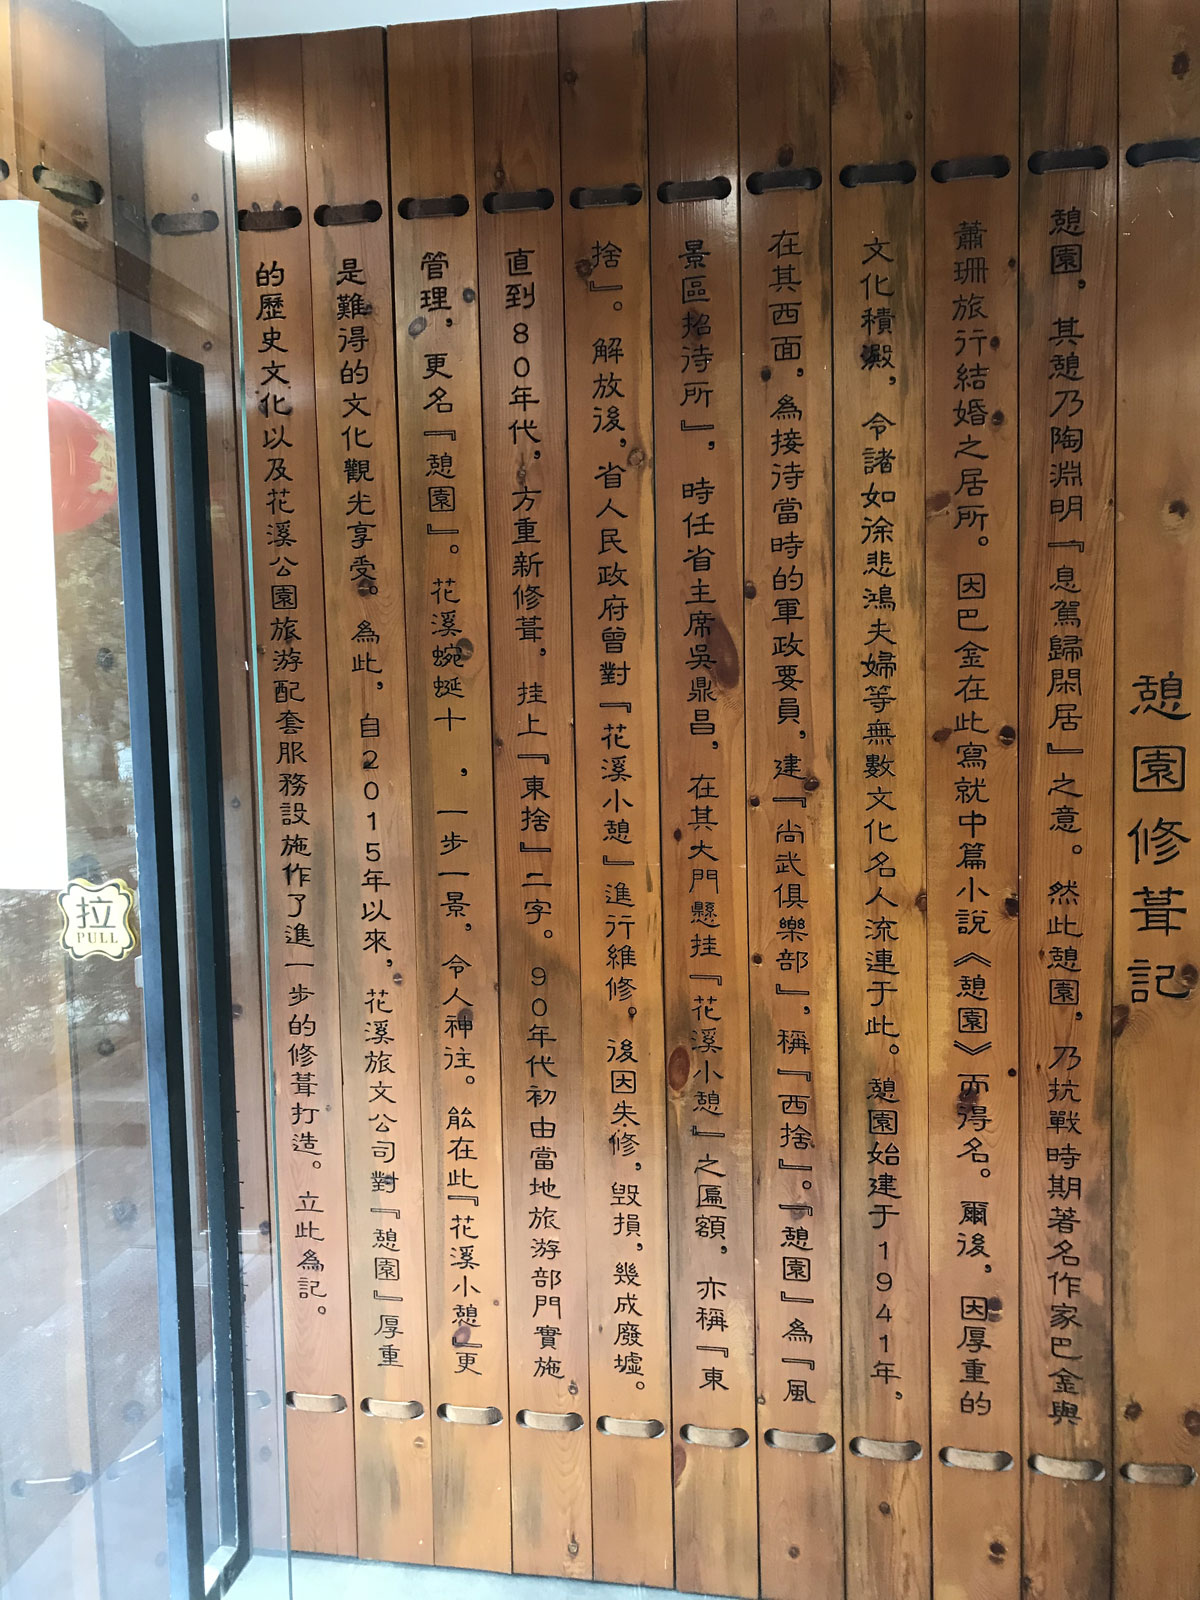 憩園修葺記
憩園，其憩乃陶淵明『息駕歸閑居』之意。然此憩園，乃抗戰時期著名作家巴金與
蕭珊旅行結婚之居所。因巴金在此寫就中篇小說《憩園》而得名。爾後，因厚重的
文化積澱，令諸如徐悲鴻夫婦等無數文化名人流連于此。憩園始建于1941年，
在其西面，為接待當時的軍政要員，建『尚武俱樂部』，稱『西捨』。『憩園』為『風
景區招待所』，時任省主席吳鼎昌，在其大門懸挂『花溪小憩』之匾額，亦稱『東
捨』。解放後，省人民政府曾對『花溪小憩』進行維修。後因失修，毀損，幾成廢墟。
直到80年代，方重新修葺，挂上『東捨』二字。90年代初由當地旅游部門實施
管理，更名『憩園』。花溪蜿蜒十，一步一景，令人神往。能在此『花溪小憩』更
是難得的文化觀光享受。為此，自2015年以來，花溪旅文公司對『憩園』厚重
的歷史文化以及花溪公園旅游配套服務設施作了進一步的修葺打造。立此為記。
拉
PULL